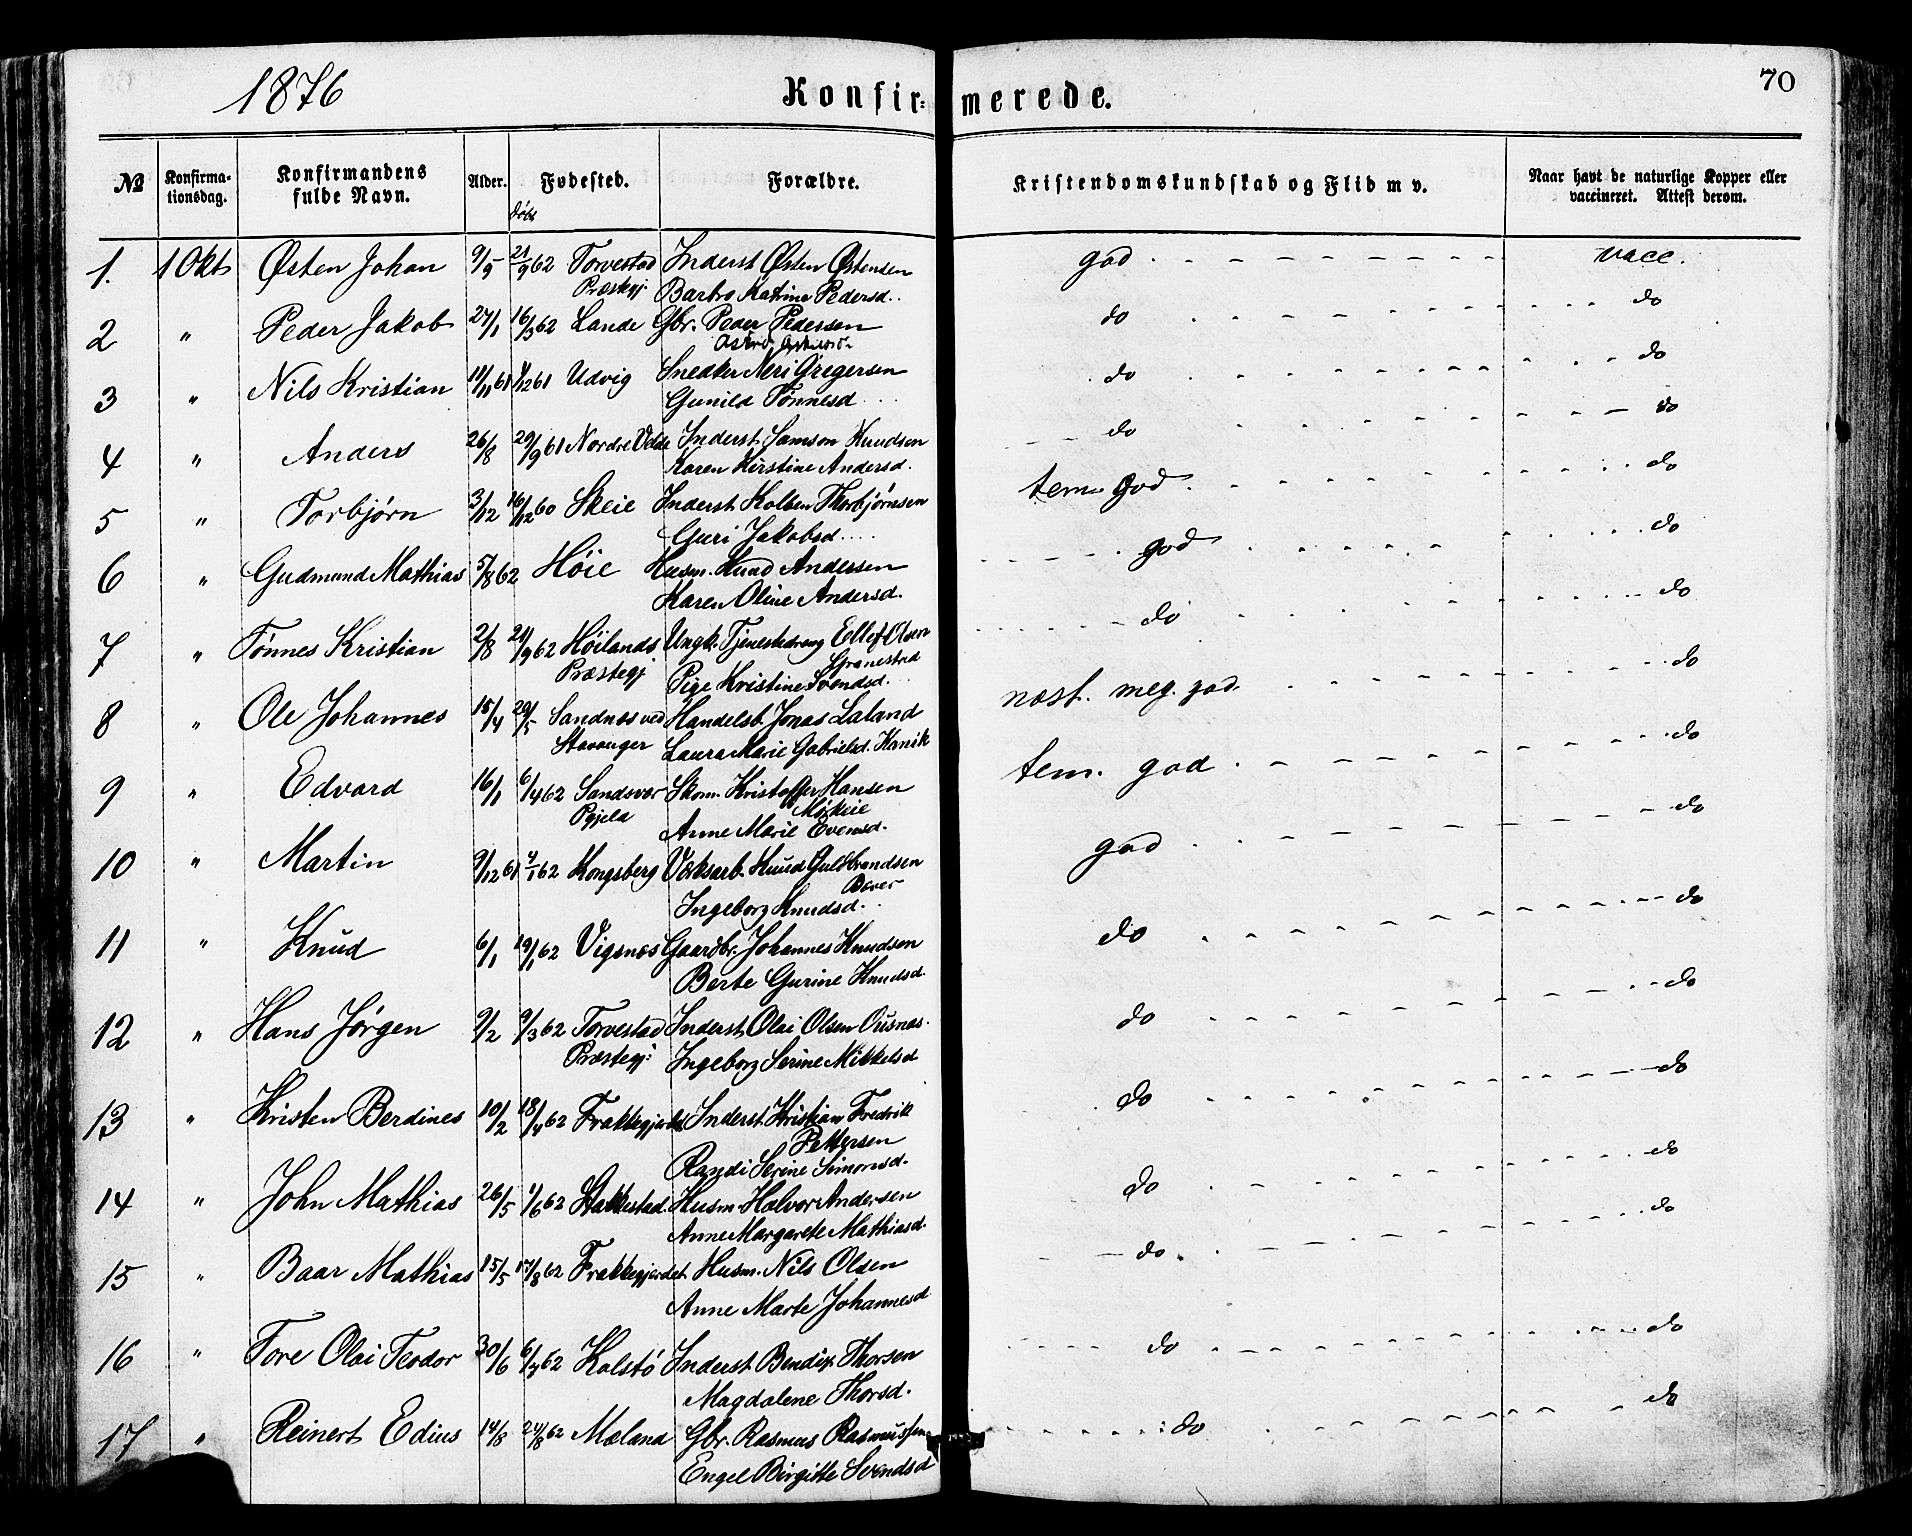 1876 Konfir- merede. 70
№ Konfirma- tionsdag. Konfirmandens fulde Navn. Alder. Fødested. Forældre. Kristendomskundskab og Flid m v. Naar havt de naturlige Kopper eller vaccineret. Attest derom.
døbt
1. 1 Okt Østen Johan 9/9 21/9 62 Torvestad Inderst Østen Østensen god vacc.
Præstegj Barbro Katrine Pedersd.
2 " Peder Jakob 27/1 16/3 62 Lande Gbr. Peder Pedersen do do
3 " Nils Kristian 14/11 61 1/12 61 Udvig Snedker Neri Gregersen do do
Gunild Tønnesd
4 " Anders 26/8 29/9 61 Nordre Velde Inderst Samson Knudsen do do
Karen Kirstine Andersd.
5 " Torbjørn 3/12 16/12 60 Skeie Inderst Kolben Thorbjørnsen tem. god do
Guri Jakobsd
6 " Gudmund Mathias 5/8 62 Høie Husm. Knud Andersen god do
Karen Oline Andersd.
7 " Tønnes Kristian 2/8 21/9 62 Høilands Ungk. Tjenestedreng Ellef Olsen do do
Præstegj Granestad
Pige Kristine Svendsd.
8 " Ole Johannes 15/4 29/5 Sandnæs ved Handelsb. Jonas Laland næst. meg. god do
Stavanger Laura Marie Gabrielsd. Hanik
9 " Edvard 16/1 6/4 62 Sandsvær Skom. Kristoffer Hansen tem. god do
Pgjeld
Anne Marie Evensd.
10 " Martin 9/12 61 4/1 62 Kongsberg Værksarb. Knud Guldbrandsen god do
Bever
Ingeborg Knudsd.
11 " Knud 6/1 19/1 62 Vigsnæs Gaardbr. Johannes Knudsen do do
Berte Gurine Knudsd.
12 " Hans Jørgen 9/2 9/3 62 Torvestad Inderst Olai Olsen Ousnæs. do do
Præstegj: Ingeborg Serine Mikkelsd
13 " Kristen Berdines 10/2 18/4 62 Frakkegjerdet Inderst Kristian Fredrik do do
Pettersen
Randi Serine Simonsd.
14 " John Mathias 26/5 1/6 62 Stakkestad Husm. Halvor Andersen do do
Anne Margarete Mathiasd.
15 " Baar Mathias 15/5 17/8 62 Frakkegjerdet Husm. Nils Olsen do do
Anne Marte Johannesd
16 " Tore Olai Teodor 30/6 6/7 62 Kolstø Inderst Bendix Thorsen do do
Magdalene Thorsd.
17 " Reinert Edius 14/8 24/8 62 Mæland Gbr. Rasmus Rasmussen do do
Engel Birgitte Svendsd